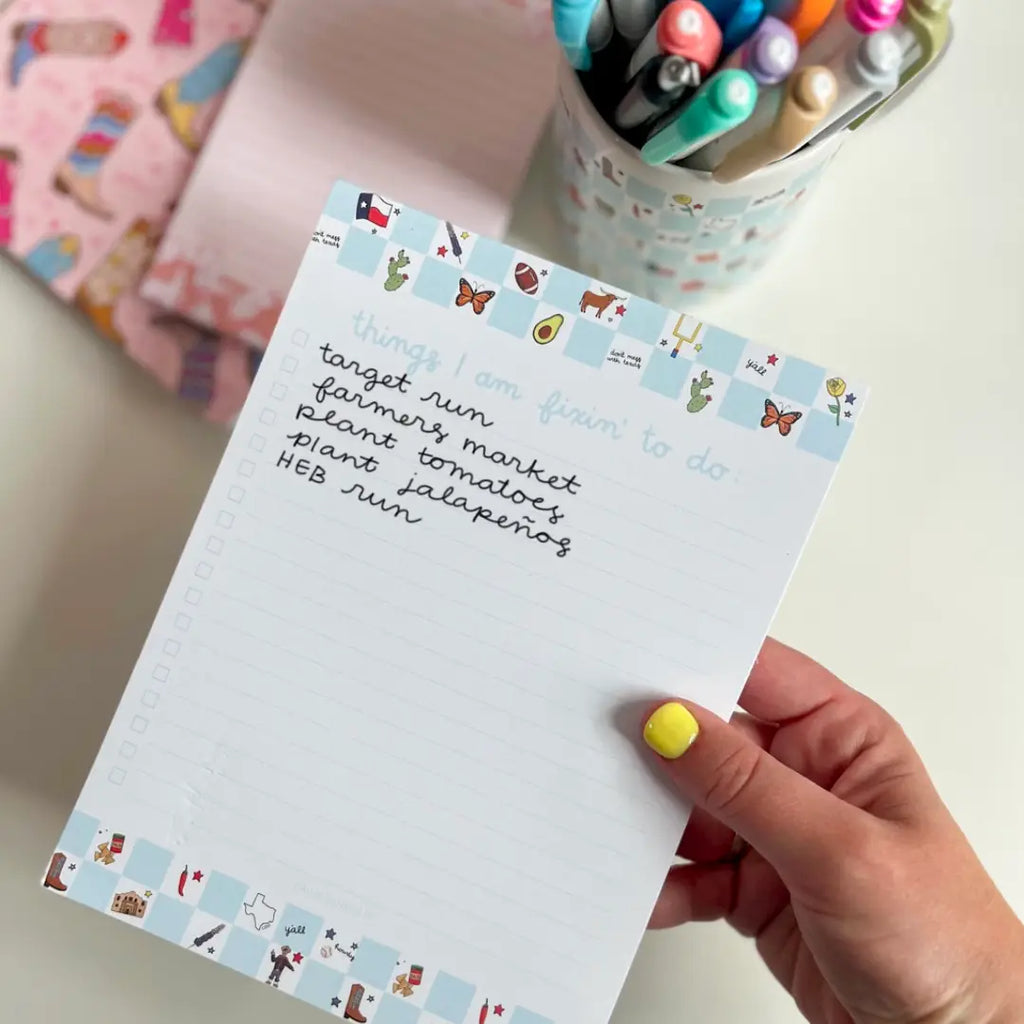 don't mess with texas
don't mess with texas
y'all
things I am fixin' to do:
target run
farmers market
plant tomatoes
plant jalapeños
HEB run
y'all
howdy